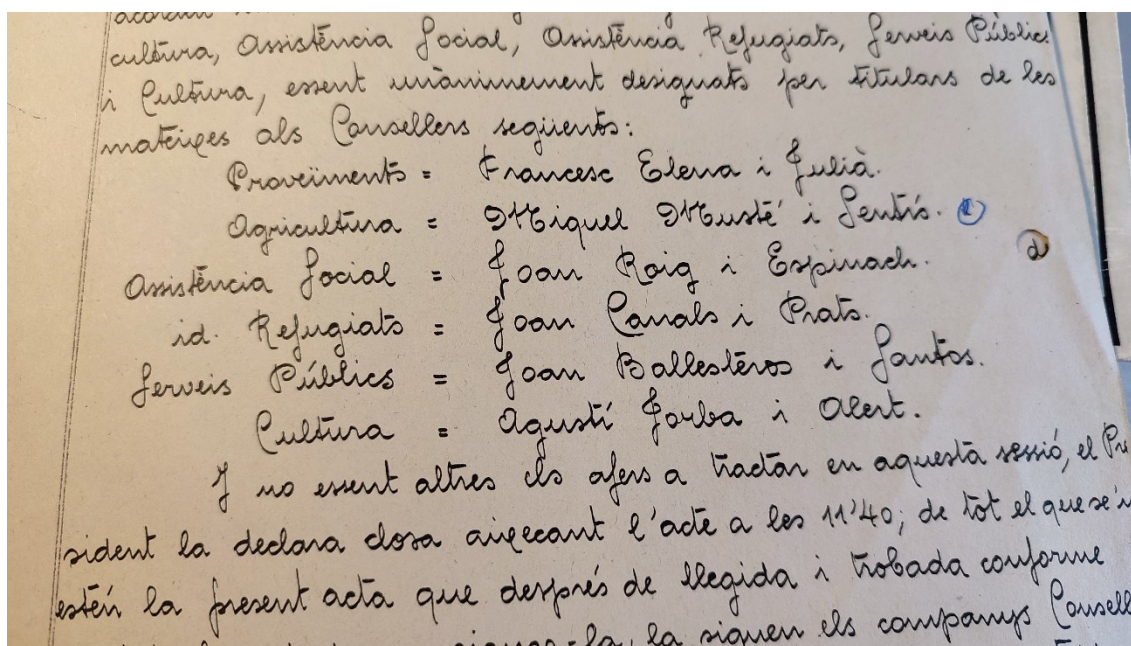 cultura, Assistència Social, Assistència Refugiats, Serveis Públics
i Cultura, essent unànimement designats per titulars de les
mateixes als Consellers següents:
Proveïments = Francesc Elena i Julià.
Agricultura = Miquel Musté i Sentís.
Assistència Social = Joan Roig i Espinach.
id. Refugiats = Joan Canals i Prats.
Serveis Públics = Joan Ballesteros i Santos.
Cultura = Agustí Jorba i Alert.
I no essent altres els afers a tractar en aquesta sessió, el Pre
sident la declara closa aixecant l'acte a les 11'40; de tot el que se'n
estén la present acta que després de llegida i trobada conforme
la signen els companys Consell